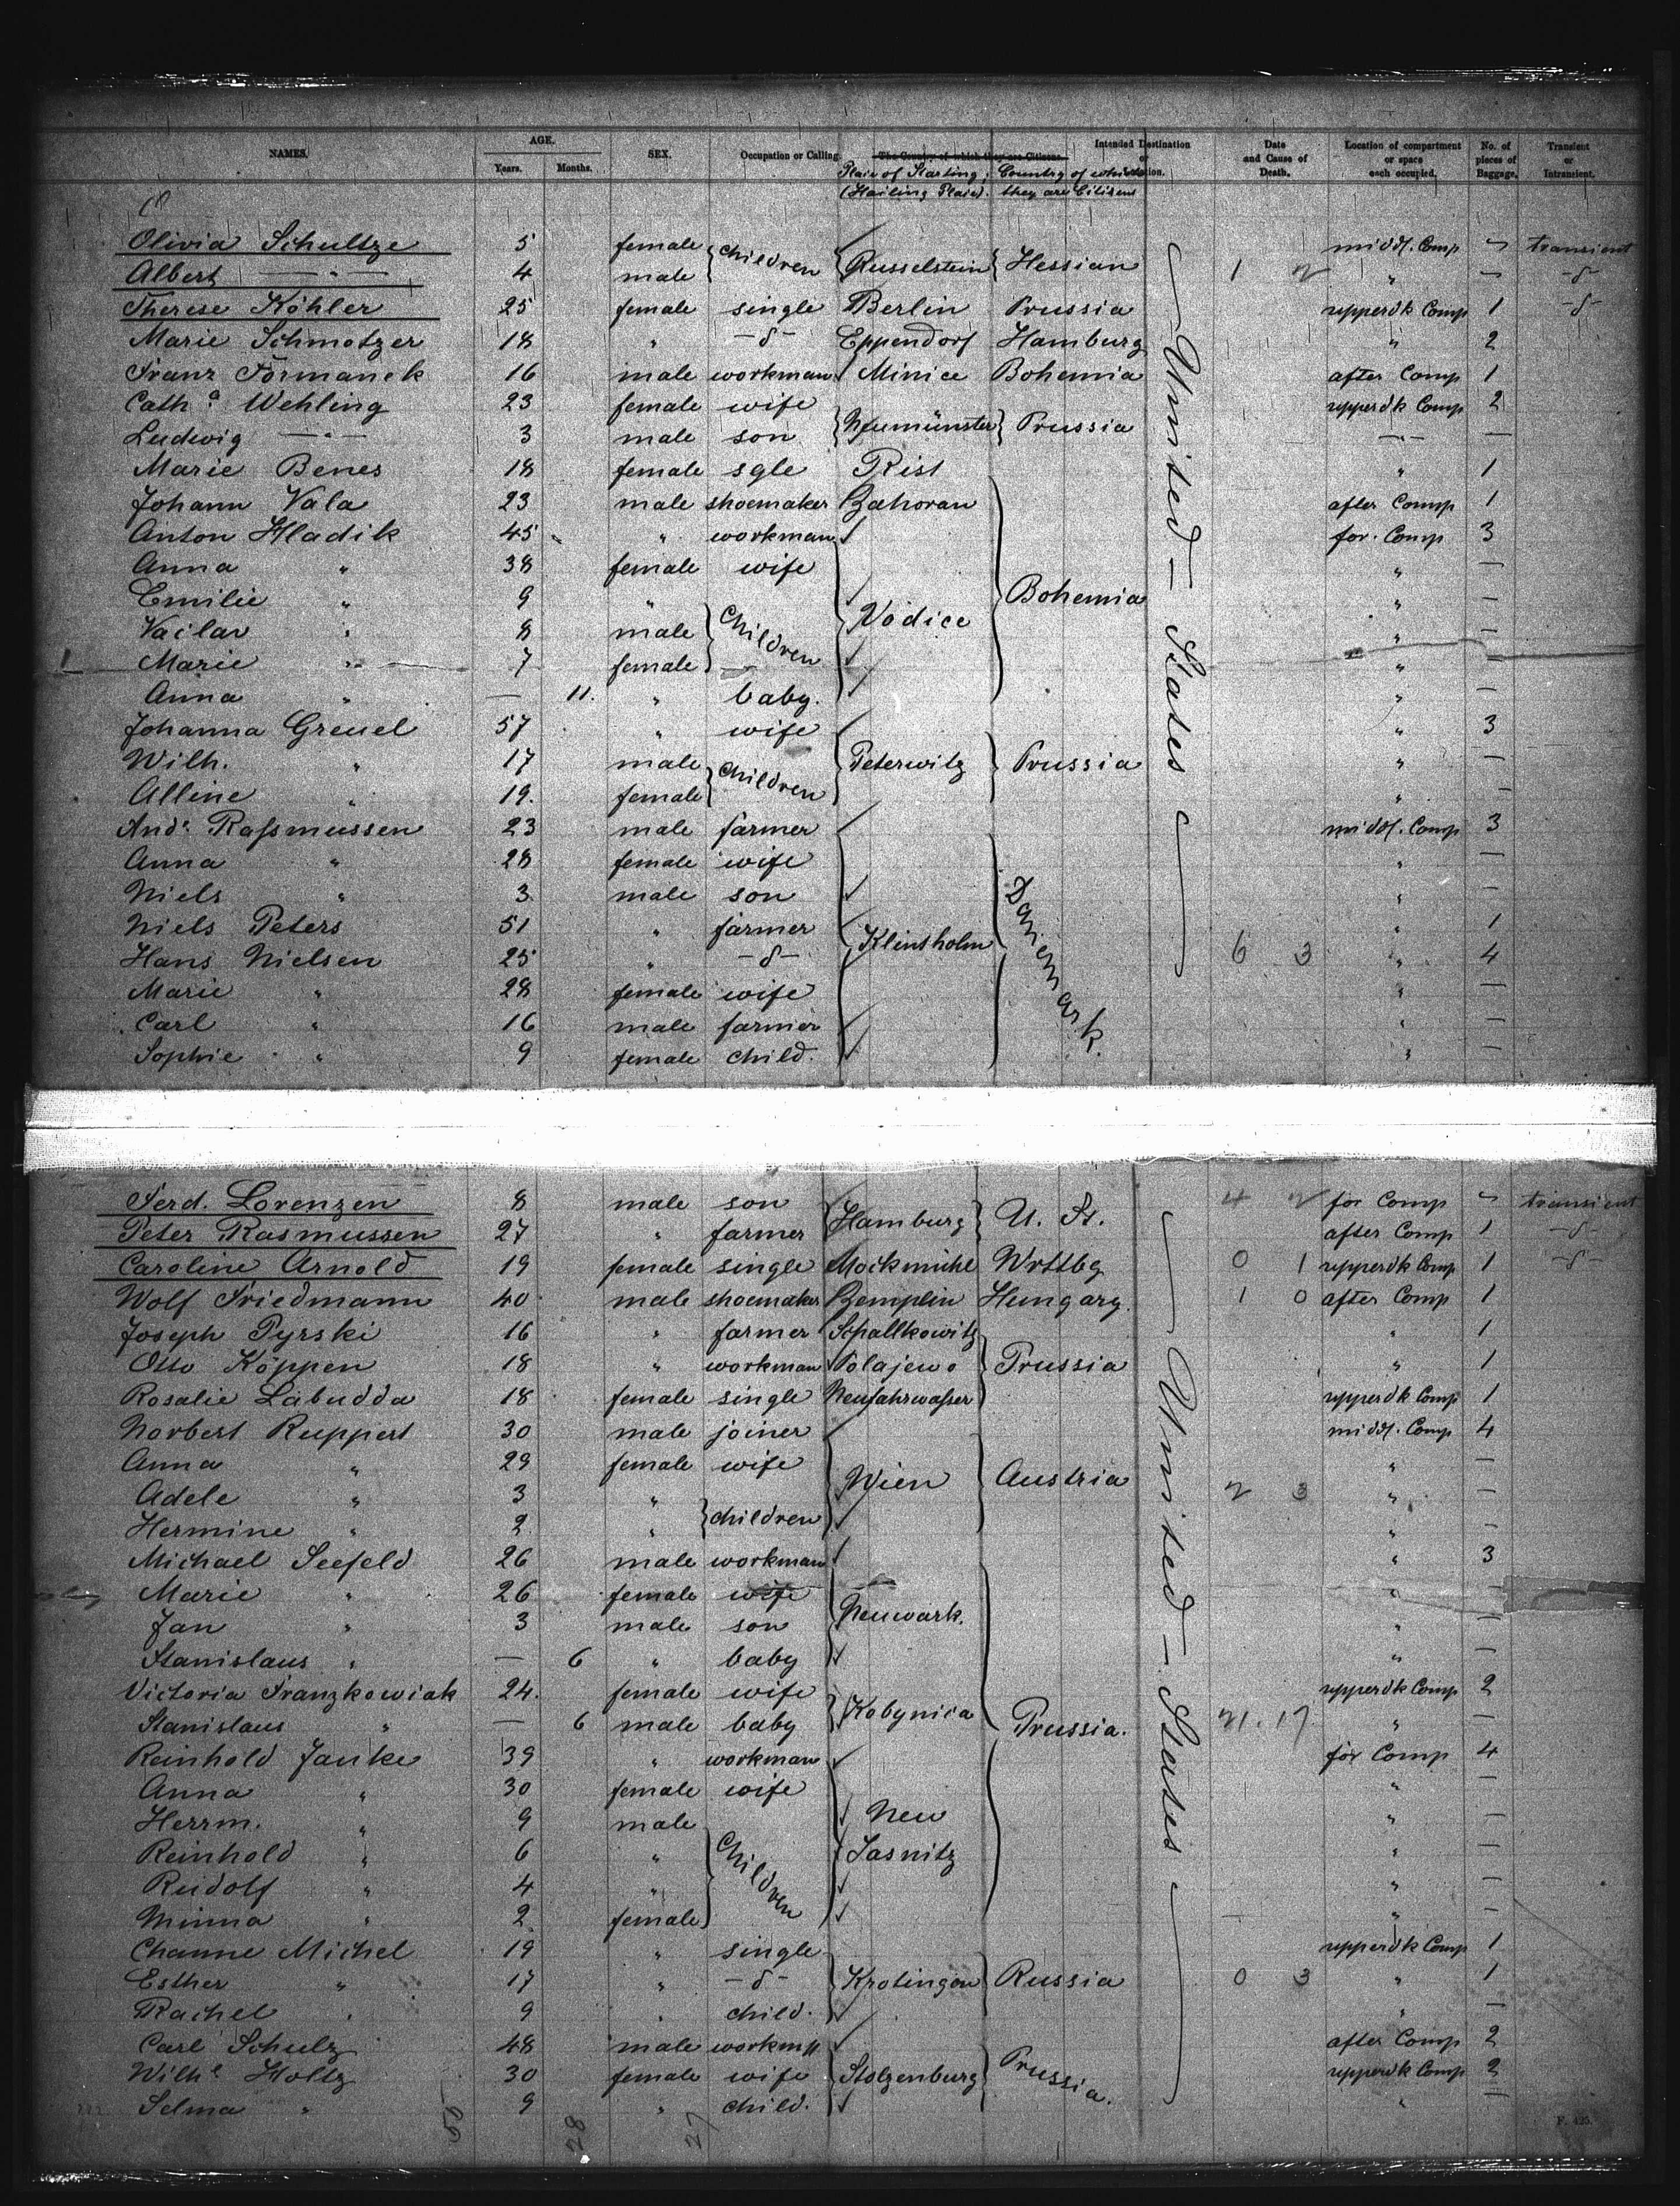 NAMES. AGE. Years. Months. SEX. Occupation or Calling The Country of which they are Citizens. Intended Destination or Date and Cause of Death. Location of compartment or space each occupied. No. of pieces of Baggage. Transient or Intransient.
Place of Starting; Country of which
(Hailing Place). they are Citizens
Olivia Schultze 5 female children Russelstein Hessian middl. Comp transient
Albert — " — 4 male 1 2 " — -d-
Therese Köhler 25 female single Berlin Prussia upperdk Comp 1 -d-
Marie Schmotzer 18 " -d- Eppendorf Hamburg " 2
Franz Formanek 16 male workman Minice Bohemia after Comp 1
Cath.a Wehling 23 female wife Neumünster Prussia upperdk Comp 2
Ludwig — " — 3 male son — " — —
Marie Benes 18 female sgle Rist " 1
Johann Vala 23 male shoemaker Zahoran Bohemia after Comp 1
Anton Hladik 45 " workman Vodice for. Comp 3
Anna " 38 female wife " —
Emilie " 9 " Children " —
Vaclav " 8 male " —
Marie " 7 female " —
Anna " — 11. " baby. " —
Johanna Greuel 57 " wife Peterwitz Prussia " 3
Wilh. " 17 male children " —
Alline " 19. female " —
And.r Rassmussen 23 male farmer Klintsholm Danemark. middl. Comp 3
Anna " 28 female wife " —
Niels " 3 male son " —
Niels Peters 51 " farmer " 1
Hans Nielsen 25 " -d- 6 3 " 4
Marie " 28 female wife " —
Carl " 16 male farmer " —
Sophie " 9 female child. " —
United — States
Ferd. Lorenzen 8 male son Hamburg U. St. 4 2 for Comp transient
Peter Rasmussen 27 " farmer after Comp 1 -d-
Caroline Arnold 19 female single Mockmühl Wrttbg 0 1 upperdk Comp 1 -d-
Wolf Friedmann 40 male shoemaker Zemplin Hungary. 1 0 after Comp 1
Joseph Pyrski 16 " farmer Schallkowitz Prussia " 1
Otto Köppen 18 " workman Polajewo " 1
Rosalie Labudda 18 female single Neufahrwasser upperdk Comp 1
Norbert Ruppert 30 male joiner Wien Austria middl. Comp 4
Anna " 29 female wife " —
Adele " 3 " children 2 3 " —
Hermine " 2 " " —
Michael Seefeld 26 male workman Neuwark. Prussia. " 3
Marie " 26 female wife " —
Jan " 3 male son " —
Stanislaus " — 6 " baby " —
Victoria Franzkowiak 24. female wife Kobynica upperdk Comp 2
Stanislaus " — 6 male baby 21. 17 " —
Reinhold Janke 39 " workman New Jasnitz for Comp 4
Anna " 30 female wife " —
Herrm. " 9 male Children " —
Reinhold " 6 " " —
Rudolf " 4 " " —
Minna " 2. female " —
Channe Michel 19 " single Krotingen Russia upperdk Comp 1
Esther " 17 " -d- 0 3 " 1
Rachel " 9 " child. " —
Carl Schulz 48 male workm Stolzenburg Prussia. after Comp 2
Wilh.e Holtz 30 female wife upperdk Comp 2
Selma " 9 " child. " —
United — States
50 28 27
F. 425.